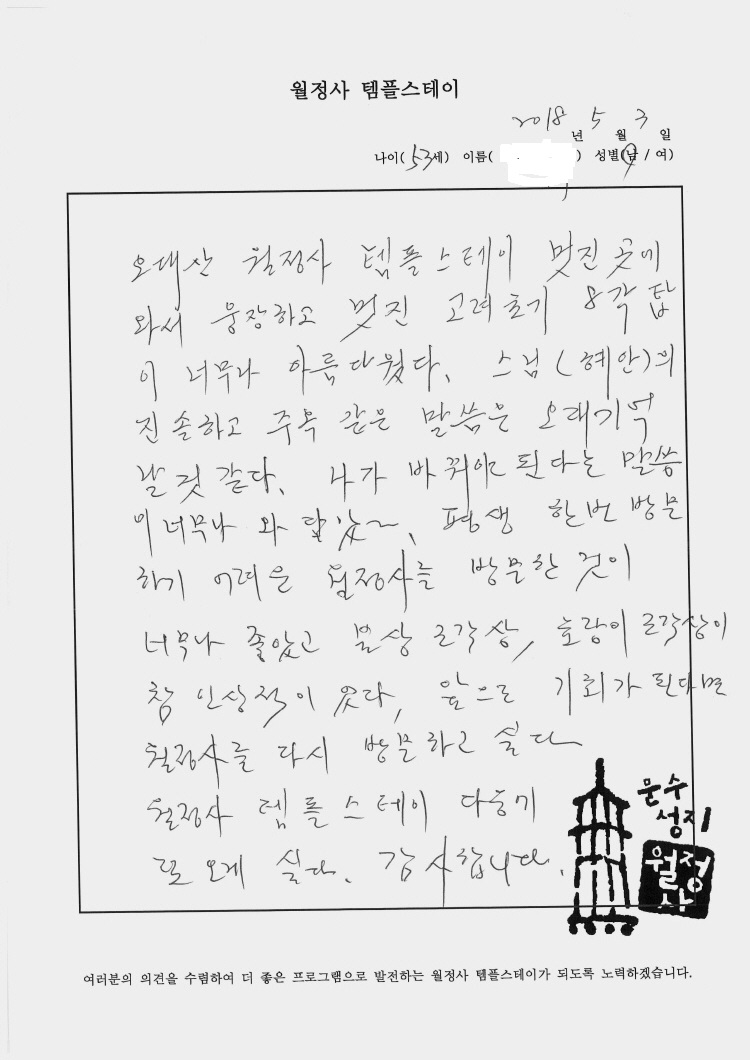 월정사 템플스테이
2018년 5월 3일
나이(53세) 이름( ) 성별(남 / 여)
오대산 월정사 템플스테이 멋진 곳에
와서 웅장하고 멋진 고려초기 8각 탑
이 너무나 아름다웠다. 스님(혜안)의
진솔하고 주옥 같은 말씀은 오래기억
날 것 같다. 나가 바뀌야 된다는 말씀
이 너무나 와 닿았~. 평생 한번 방문
하기 어려운 월정사를 방문한 것이
너무나 좋았고 조각상, 호랑이 조각상이
참 인상적이 었다, 앞으로 기회가 된다면
월정사를 다시 방문하고 싶다
월정사 템플스테이 다음기
또 오게 싶다. 감사합니다.
문수
성지
월정
사
여러분의 의견을 수렴하여 더 좋은 프로그램으로 발전하는 월정사 템플스테이가 되도록 노력하겠습니다.